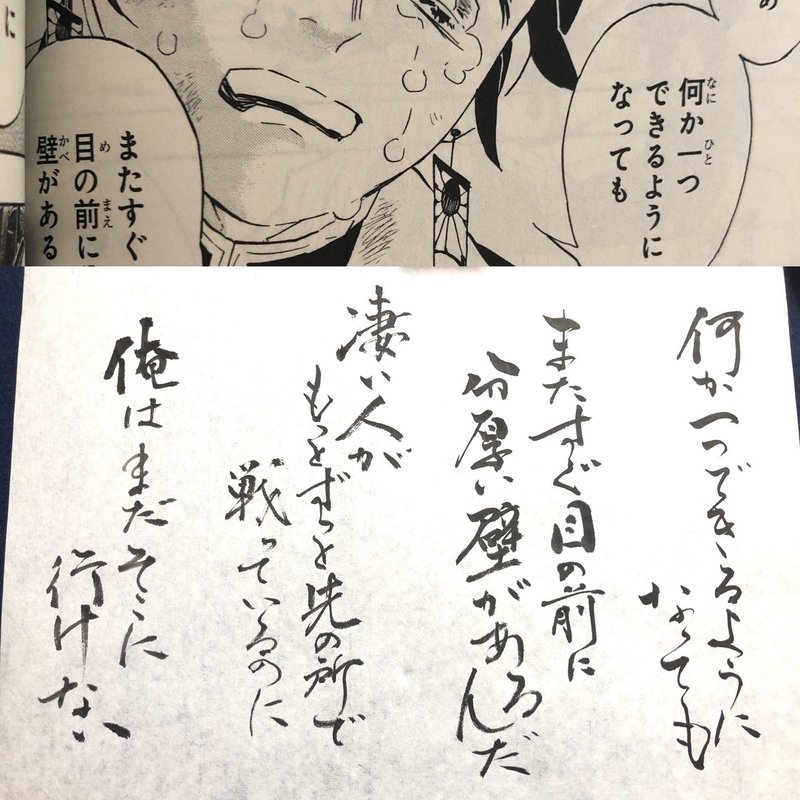 め
何か一つ
できるように
なっても
またすぐ
目の前に
壁がある
に
何か一つできるように
なっても
またすぐ目の前に
分厚い壁があるんだ
凄い人が
もっとずっと先の所で
戦っているのに
俺はまだそこに
行けない